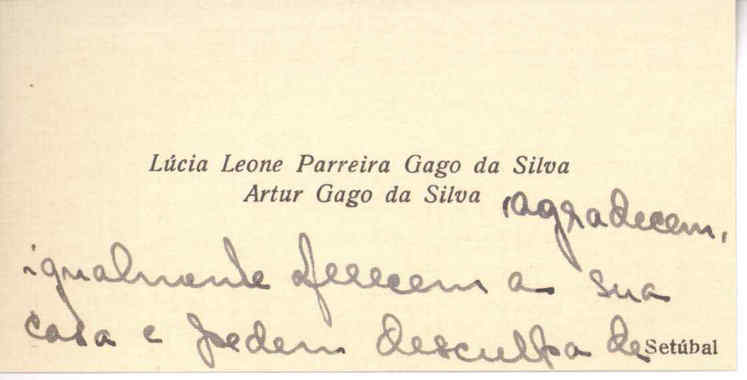 Lúcia Leone Parreira Gago da Silva
Artur Gago da Silva agradecem,
igualmente oferecem a sua
casa e pedem desculpa de Setúbal